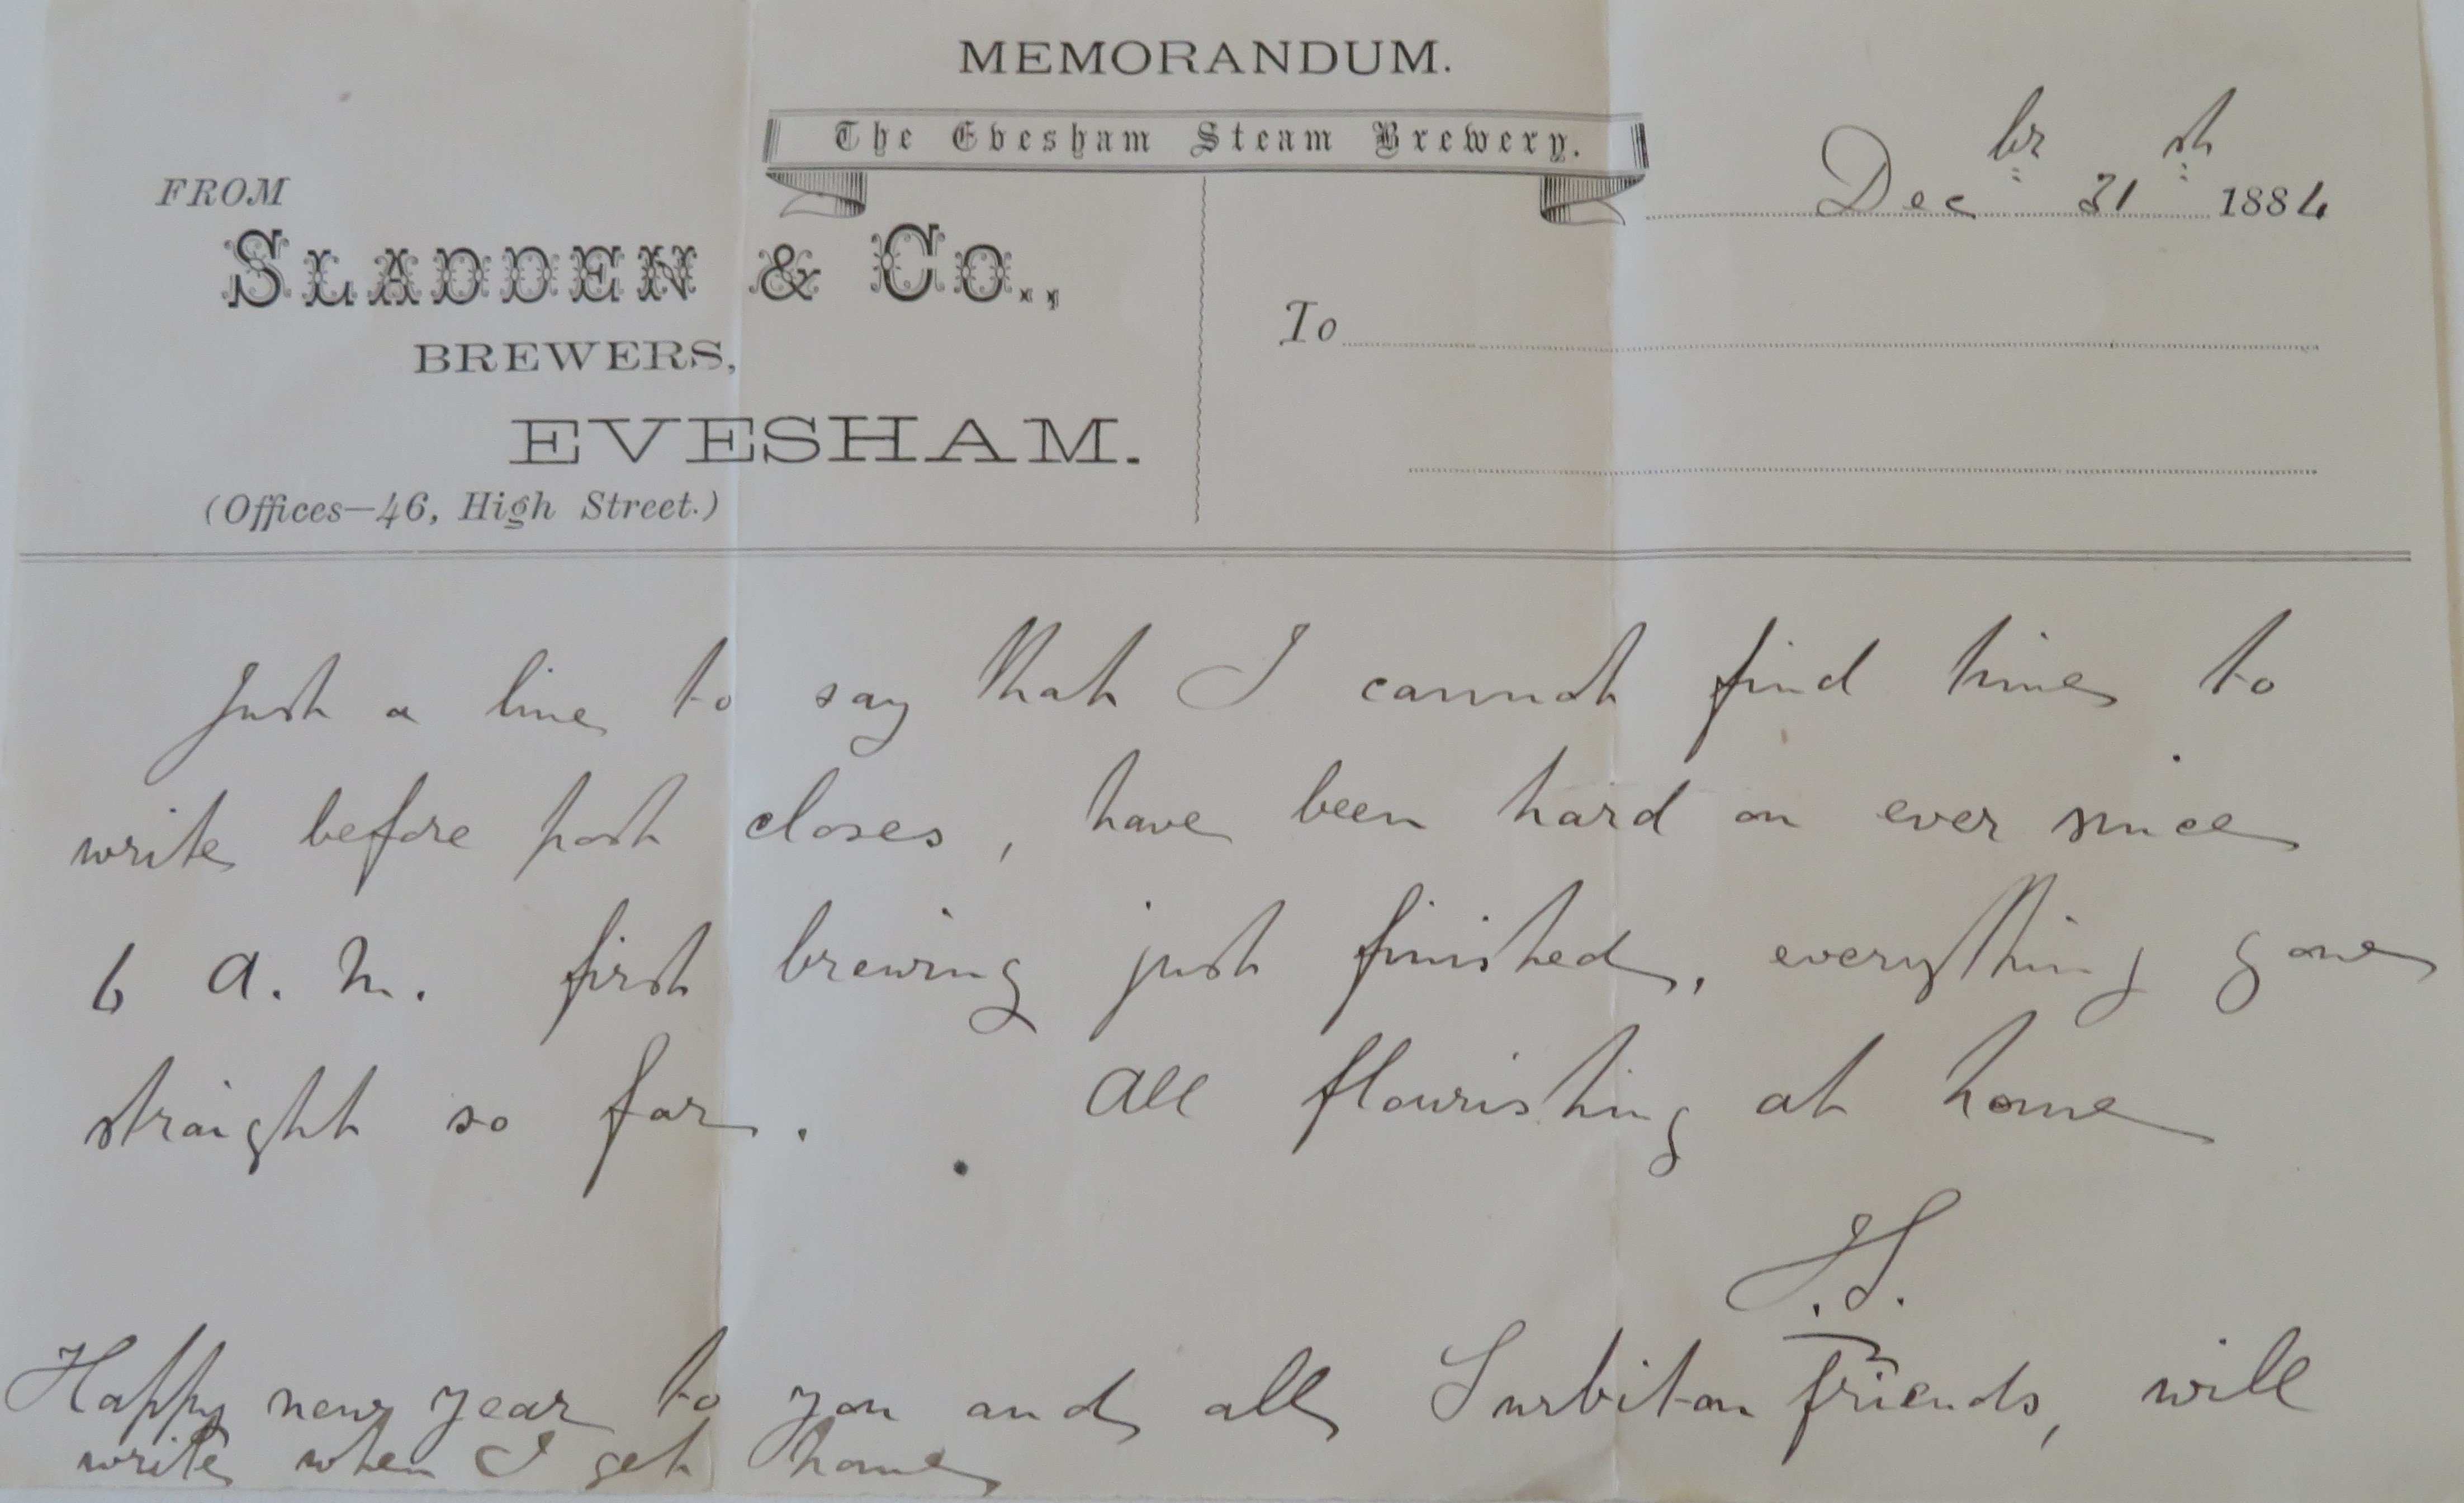 MEMORANDUM.
The Evesham Steam Brewery.
Decbr 31st 1884
FROM
SLADDEN & Co.,
BREWERS,
EVESHAM.
(Offices—46, High Street.)
To
Just a line to say that I cannot find time to
write before post closes, have been hard on ever since
6 a.m. first brewing just finished, everything gone
straight so far. All flourishing at home
J.S.
Happy new year to you and all Surbiton friends, will
write when I get home